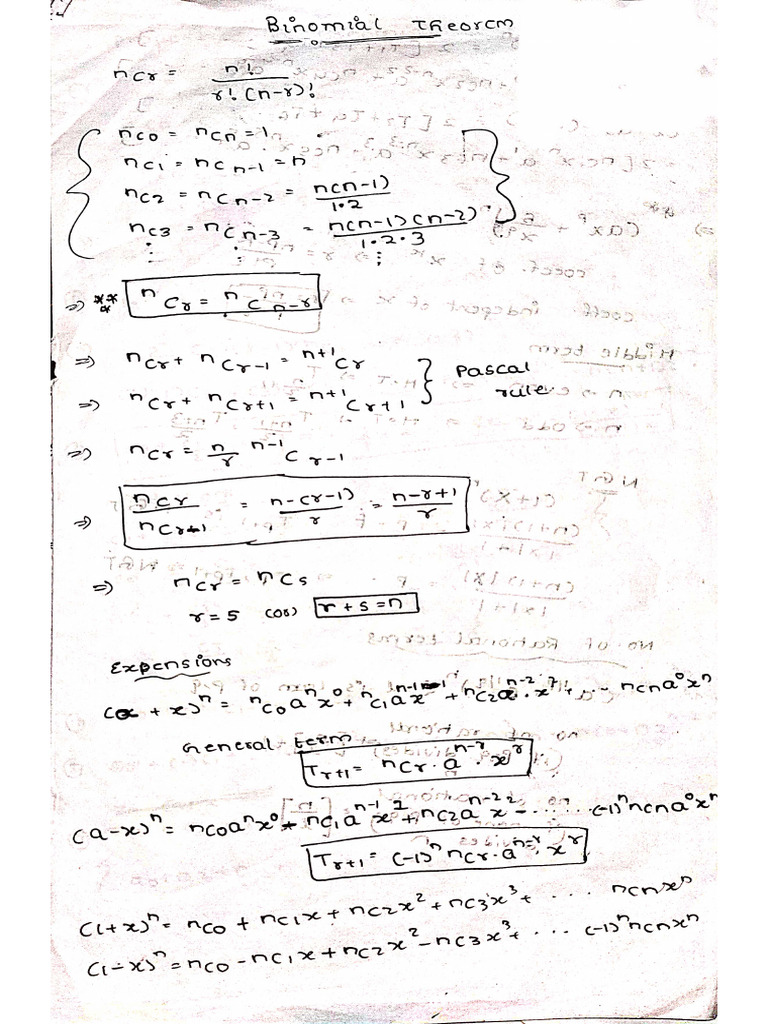 Binomial Theorem
nCr = n! / r!(n-r)!
nC0 = nCn = 1
nC1 = nCn-1 = n
nC2 = nCn-2 = n(n-1) / 1·2
nC3 = nCn-3 = n(n-1)(n-2) / 1·2·3
⋮ ⋮ ⋮
⇒ *** nCr = nCn-r
⇒ nCr + nCr-1 = n+1Cr
⇒ nCr + nCr+1 = n+1Cr+1 } Pascal rule
⇒ nCr = n/r n-1Cr-1
⇒ nCr / nCr+1 = n-(r-1) / r = n-r+1 / r
⇒ nCr = nCs
r = s (or) r + s = n
Expensions
(a + x)^n = nC0 a^n x^0 + nC1 a^n-1 x^1 + nC2 a^n-2 · x^2 + ... nCn a^0 x^n
General term
Tr+1 = nCr · a^n-r · x^r
(a-x)^n = nC0 a^n x^0 - nC1 a^n-1 x^2 + nC2 a^n-2 x^2 - ...... (-1)^n nCn a^0 x^n
Tr+1 = (-1)^n nCr · a^n-r · x^r
(1+x)^n = nC0 + nC1x + nC2x^2 + nC3x^3 + ... nCnx^n
(1-x)^n = nC0 - nC1x + nC2x^2 - nC3x^3 + ... (-1)^n nCnx^n